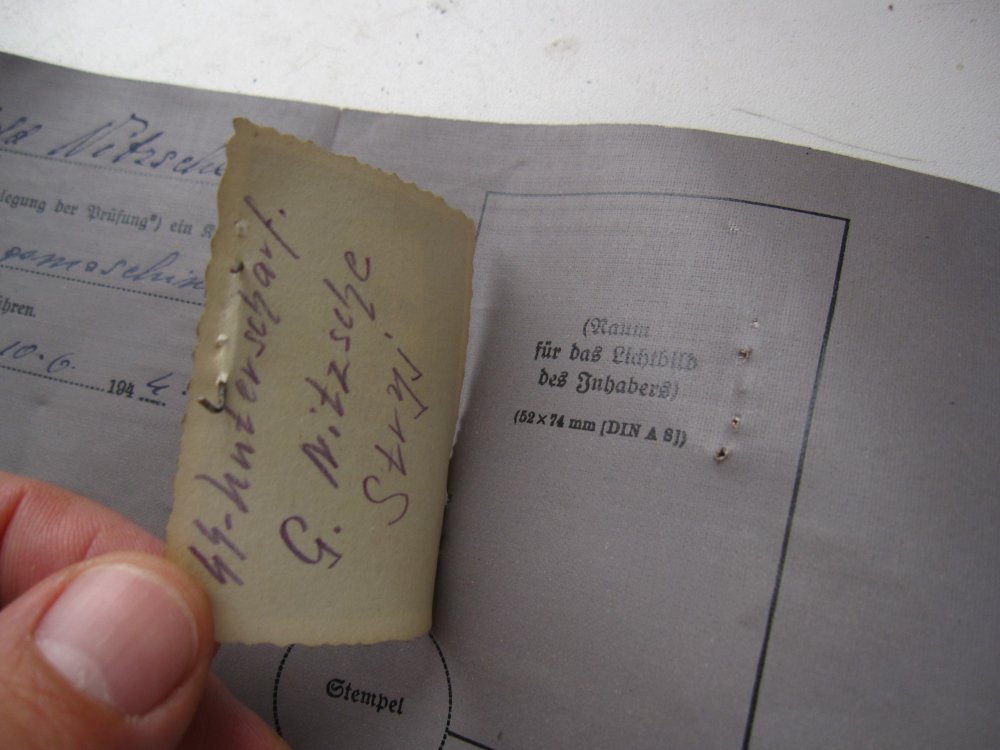 Nitzsche
legung der Prüfung*) ein K
ühren.
10.6. 1944.
SS-Unterscharf.
G. Nitzsche
Stryj
(Raum
für das Lichtbild
des Inhabers)
(52 × 74 mm [DIN A 8])
Stempel